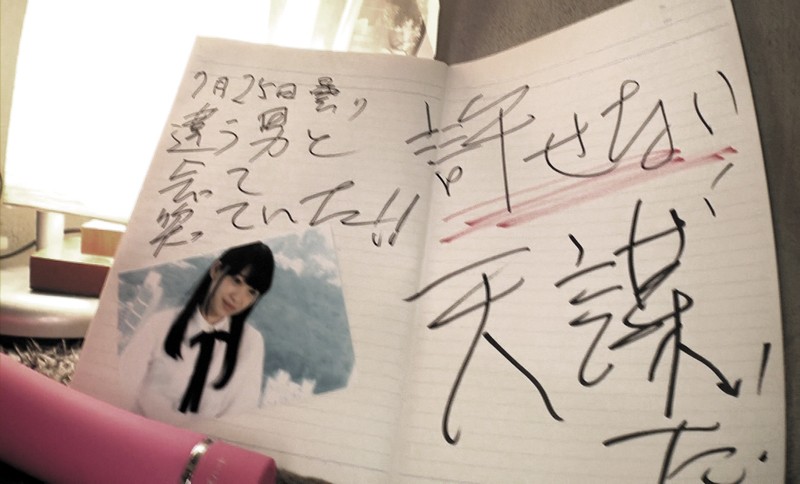 7月25日曇り
違う男と
会って
笑っていた!!
許せない!!
天誅!!
だ